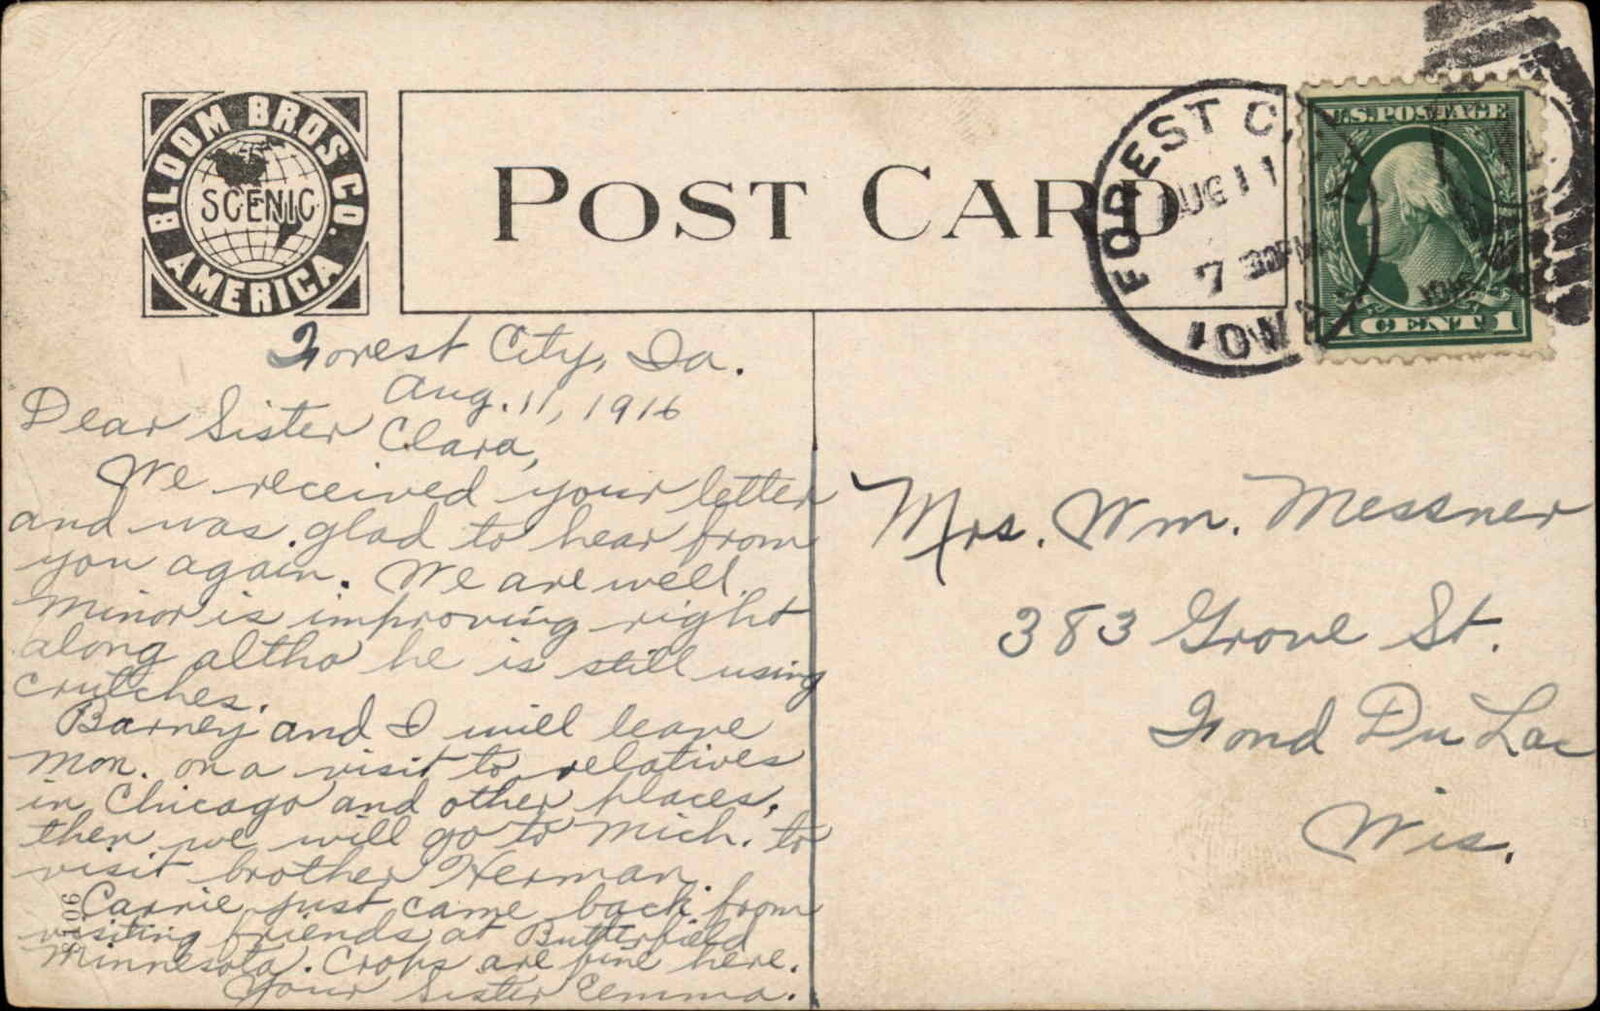 BLOOM BROS. CO.
SCENIC
AMERICA
POST CARD
FOREST C
AUG 11
7 30 PM
IOWA
U.S. POSTAGE
1 CENT 1
Forest City, Ia.
Aug. 11, 1916
Dear Sister Clara,
We received your letter
and was glad to hear from
you again. We are well.
Minor is improving right
along altho he is still using
crutches.
Barney and I will leave
Mon. on a visit to relatives
in Chicago and other places,
then we will go to Mich. to
visit brother Herman.
Carrie just came back from
visiting friends at Butterfield
Minnesota. Crops are fine here.
Your Sister Emma.
Mrs. Wm. Messner
383 Grove St.
Fond Du Lac
Wis.